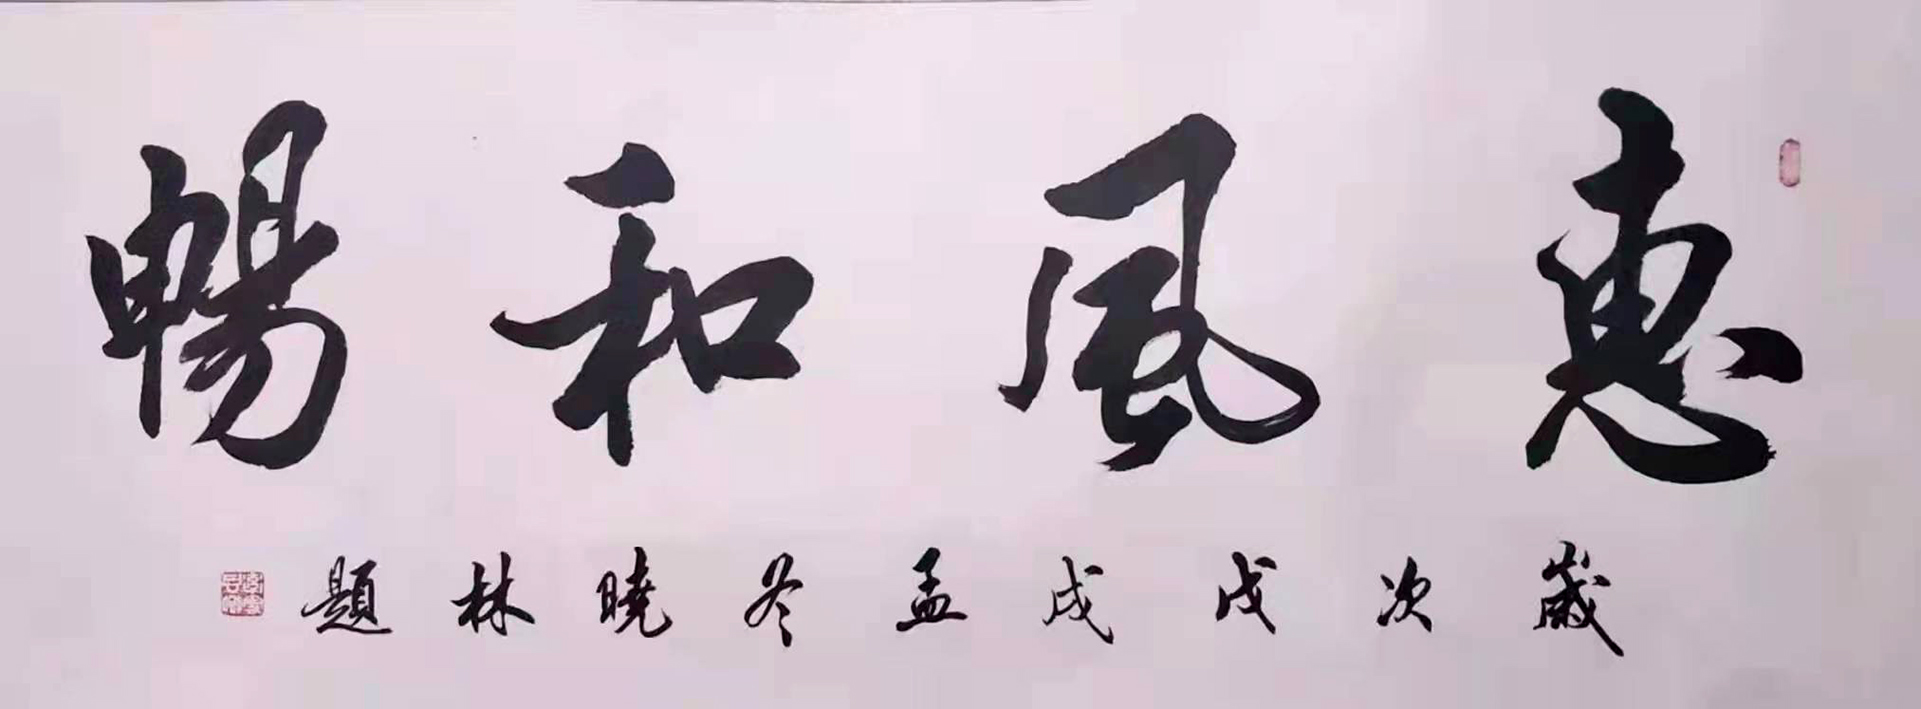 惠風和暢
歲次戊戌孟冬曉林題